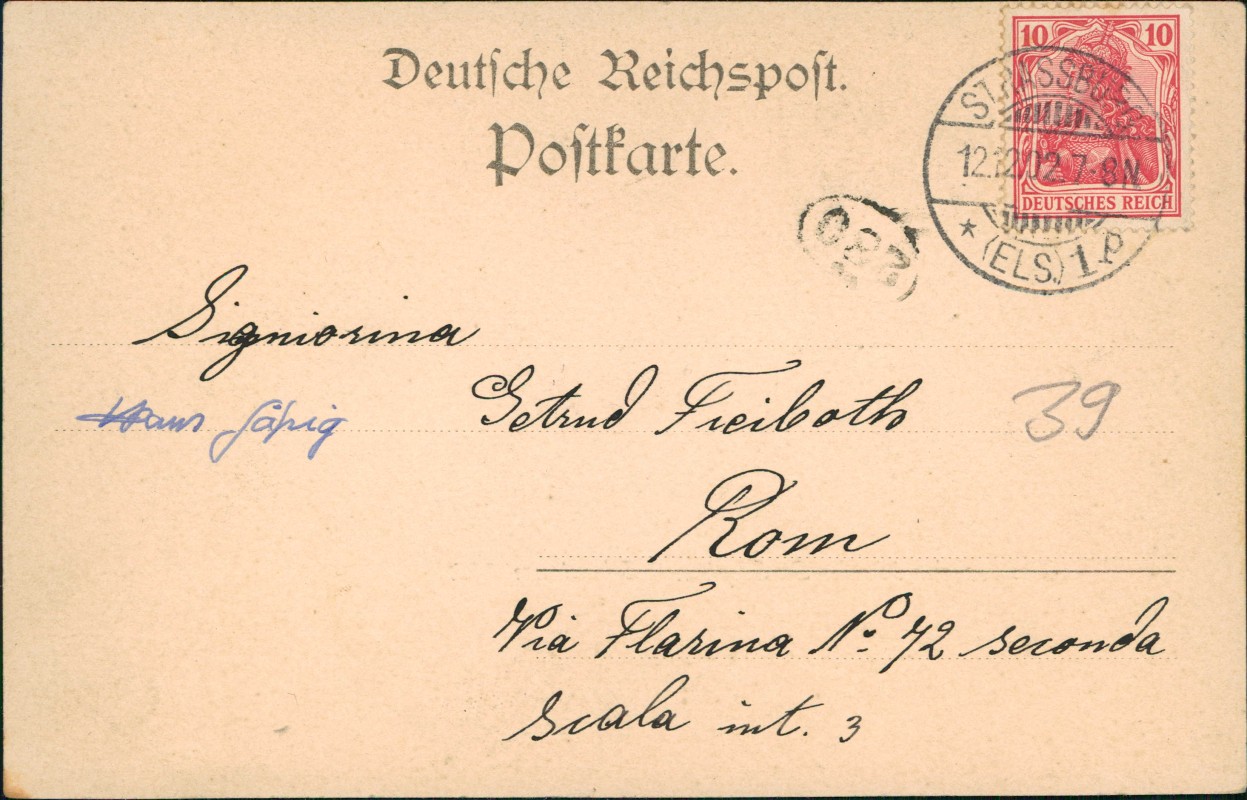 Deutsche Reichspost.
Postkarte.
10 10
DEUTSCHES REICH
STRASSBURG
12.12.02.7-8N
* (ELS.) 1.p
Signiorina
Getrud Freiboth
39
Hans
Rom
Via Flarina No. 72 seconda
scala int. 3